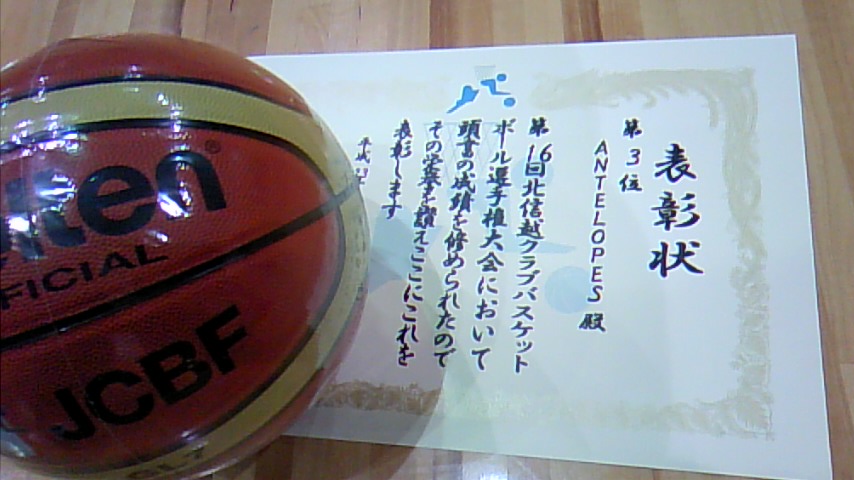 表彰状
第3位
ANTELOPES殿
第16回北信越クラブバスケット
ボール選手権大会において
頭書の成績を修められたので
その栄誉を讃えここにこれを
表彰します
平成
lten®
FFICIAL
JCBF
GL7